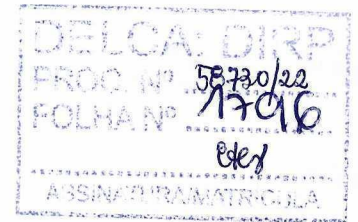 DELCA: DIRP
PROC. Nº 58730/22
FOLHA Nº 1796
ASSINATURA/MATRICULA